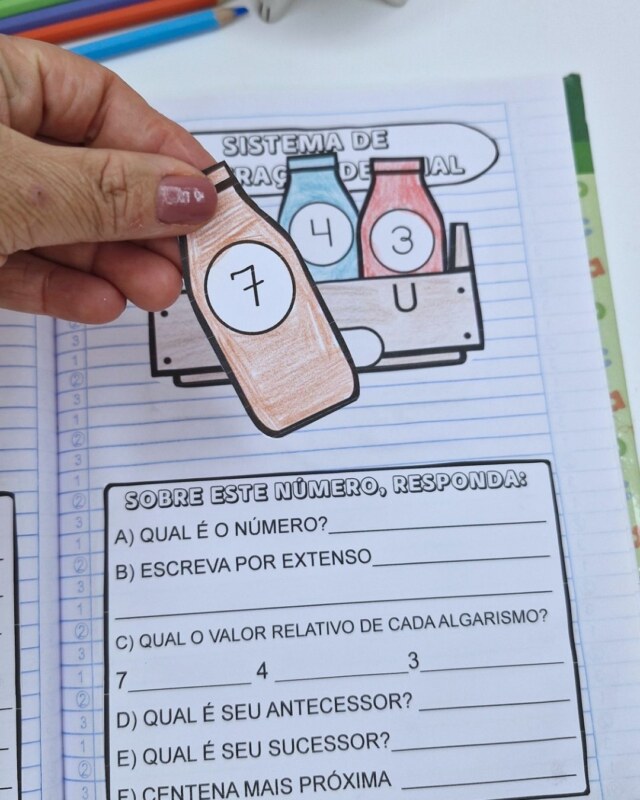 SISTEMA DE
4
3
7
U
SOBRE ESTE NÚMERO, RESPONDA:
A) QUAL É O NÚMERO?
B) ESCREVA POR EXTENSO
C) QUAL O VALOR RELATIVO DE CADA ALGARISMO?
7 4 3
D) QUAL É SEU ANTECESSOR?
E) QUAL É SEU SUCESSOR?
F) CENTENA MAIS PRÓXIMA